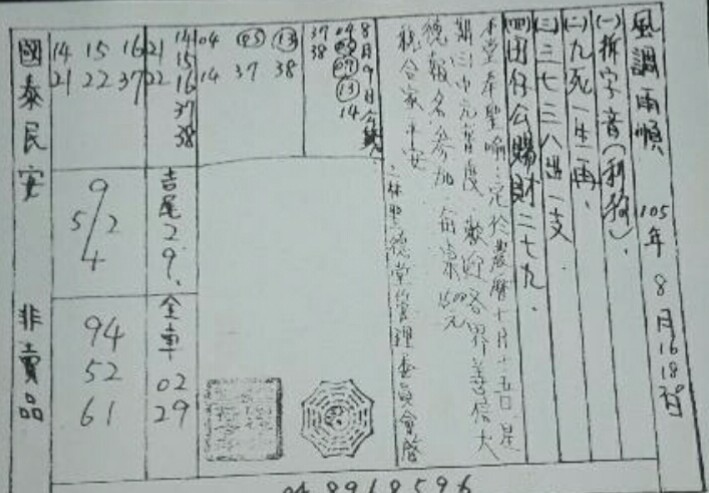 風調雨順 105年8月16 18號
(一)拆字音(利狗).
(二)九死一生再.
(三)三七三八出一支.
(四)囝仔公賜財二七九.
本堂奉聖喻:定於農曆七月十五日星
期三中元普渡歡迎各界善信大
德報名參加
祝合家平安
二林聖德堂管理委員會啓
8月9日
04 05 07 13 14
37 38
04 05 13
14 37 38
14 15 16 37 38
21 22
14 15 16
21 22 37
吉尾29.
全車 02 29
9
5/2
4
94
52
61
國泰民安 非賣品
04 8968596